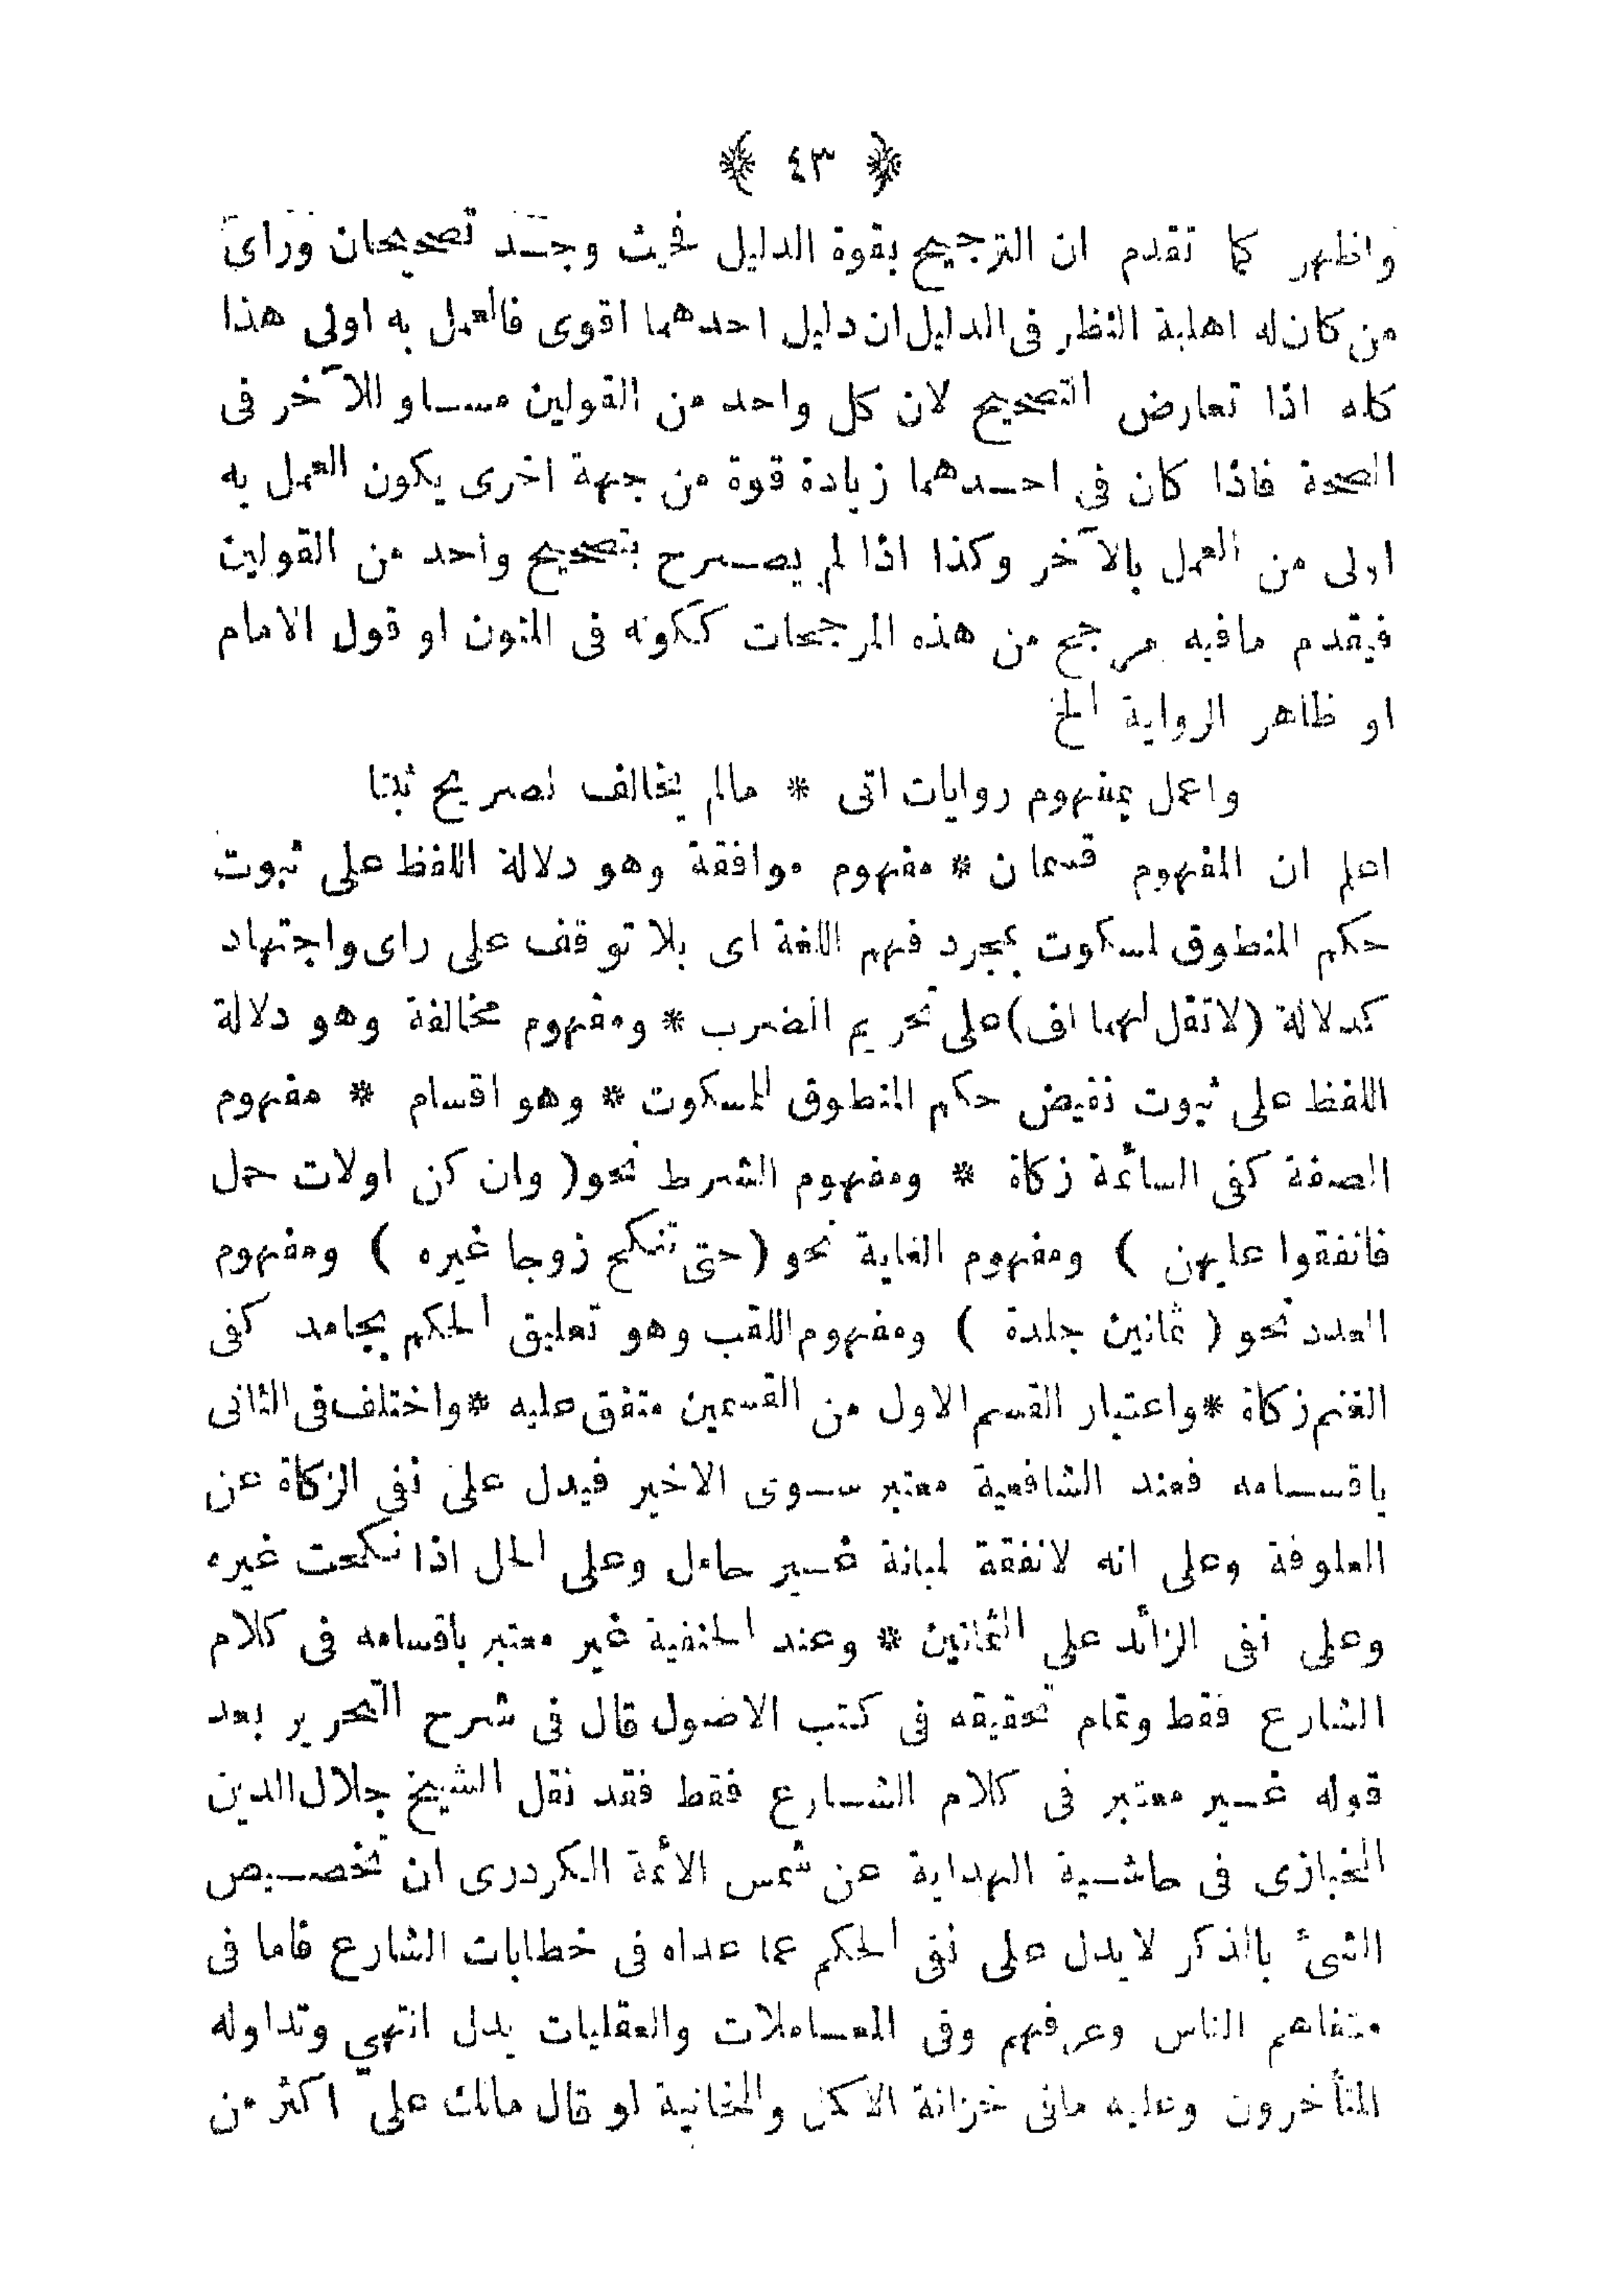 ﴿ ٤٣ ﴾
واظهر كما تقدم ان الترجيح بقوة الدليل فحيث وجد تصحيحان ورأى
من كان له اهلية النظر فى الدليل ان دليل احدهما اقوى فالعمل به اولى هذا
كله اذا تعارض التصحيح لان كل واحد من القولين مساو للآخر فى
الصحة فاذا كان فى احدهما زيادة قوة من جهة اخرى يكون العمل به
اولى من العمل بالآخر وكذا اذا لم يصرح بتصحيح واحد من القولين
فيقدم مافيه مرجح من هذه المرجحات ككونه فى المتون او قول الامام
او ظاهر الرواية الخ
واعمل بمفهوم روايات اتى * مالم يخالف لصريح ثبتا
اعلم ان المفهوم قسمان * مفهوم موافقة وهو دلالة اللفظ على ثبوت
حكم المنطوق لمسكوت بمجرد فهم اللغة اى بلا توقف على راى واجتهاد
كدلالة (لا تقل لهما اف) على تحريم الضرب * ومفهوم مخالفة وهو دلالة
اللفظ على ثبوت نقيض حكم المنطوق للمسكوت * وهو اقسام * مفهوم
الصفة كفى السائمة زكاة * ومفهوم الشرط نحو ( وان كن اولات حمل
فانفقوا عليهن ) ومفهوم الغاية نحو (حتى تنكح زوجا غيره ) ومفهوم
العدد نحو ( ثمانين جلدة ) ومفهوم اللقب وهو تعليق الحكم بجامد كفى
الغنم زكاة * واعتبار القسم الاول من القسمين متفق عليه * واختلف فى الثانى
باقسامه فعند الشافعية معتبر سوى الاخير فيدل على نفى الزكاة عن
العلوفة وعلى انه لانفقة لمبانة غير حامل وعلى الحل اذا نكحت غيره
وعلى نفى الزائد على الثمانين * وعند الحنفية غير معتبر باقسامه فى كلام
الشارع فقط وتمام تحقيقه فى كتب الاصول قال فى شرح التحرير بعد
قوله غير معتبر فى كلام الشارع فقط فقد نقل الشيخ جلال الدين
الخبازى فى حاشية الهداية عن شمس الائمة الكردرى ان تخصيص
الشئ بالذكر لايدل على نفى الحكم عما عداه فى خطابات الشارع فاما فى
متفاهم الناس وعرفهم وفى المعاملات والعقليات يدل انتهى وتداوله
المتأخرون وعليه مافى خزانة الاكمل والخانية لو قال مالك على اكثر من